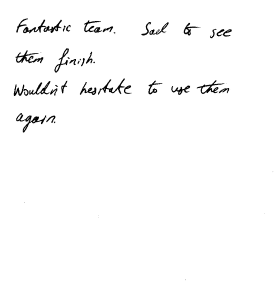 Fantastic team. Sad to see
them finish.
Wouldn't hesitate to use them
again.